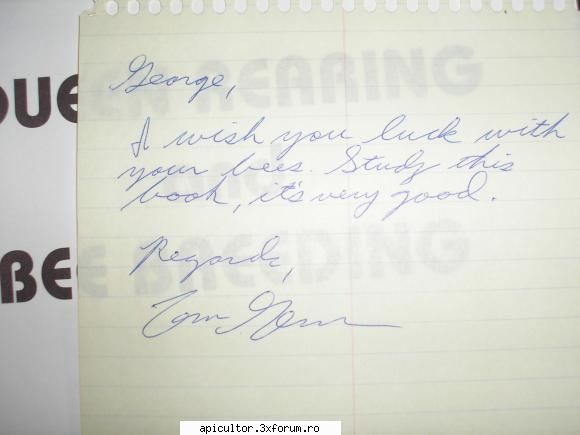 George,
QUEEN REARING
I wish you luck with
your bees. Study this
and
book, it's very good.
BEE BREEDING
Regards,
Tom
apicultor.3xforum.ro